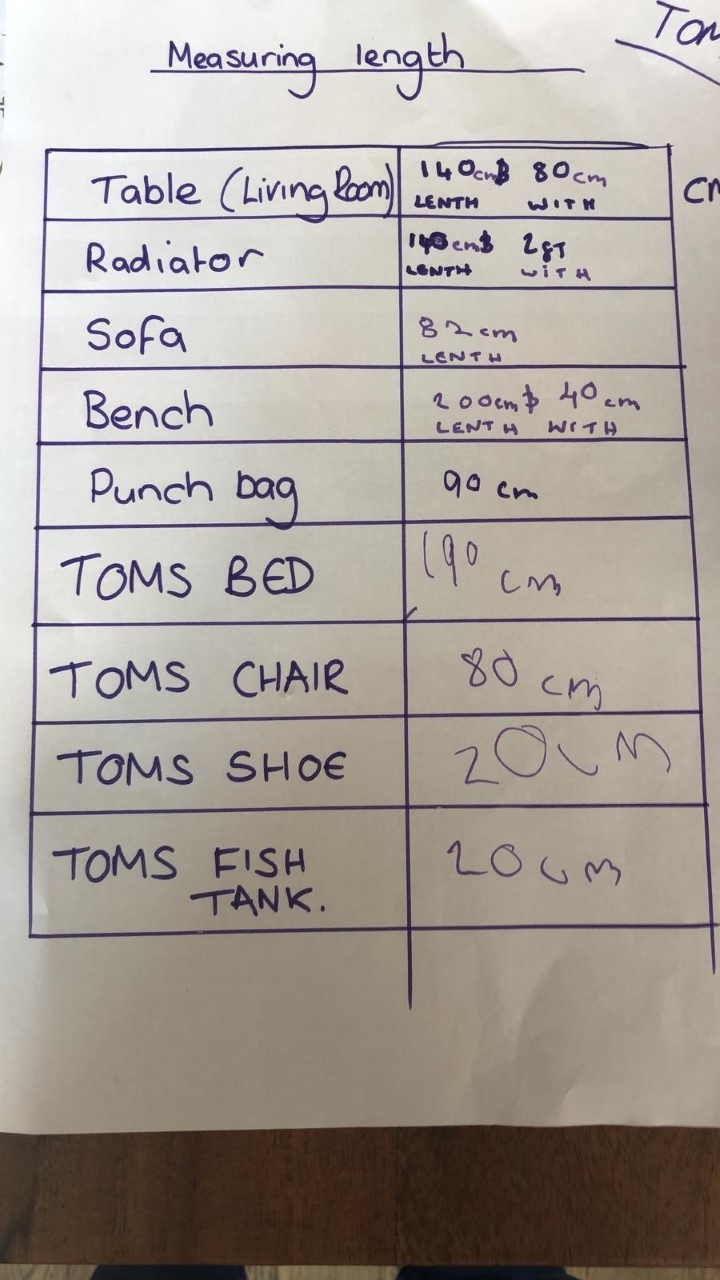 Tom
Measuring length
Table (Living Room)
140cm & 80cm
LENTH WITH
cm
Radiator
140cm &
LENTH WITH
Sofa
82cm
LENTH
Bench
200cm & 40cm
LENTH WITH
Punch bag
90 cm
TOMS BED
190 cm
TOMS CHAIR
80 cm
TOMS SHOE
20cm
TOMS FISH
TANK.
20cm